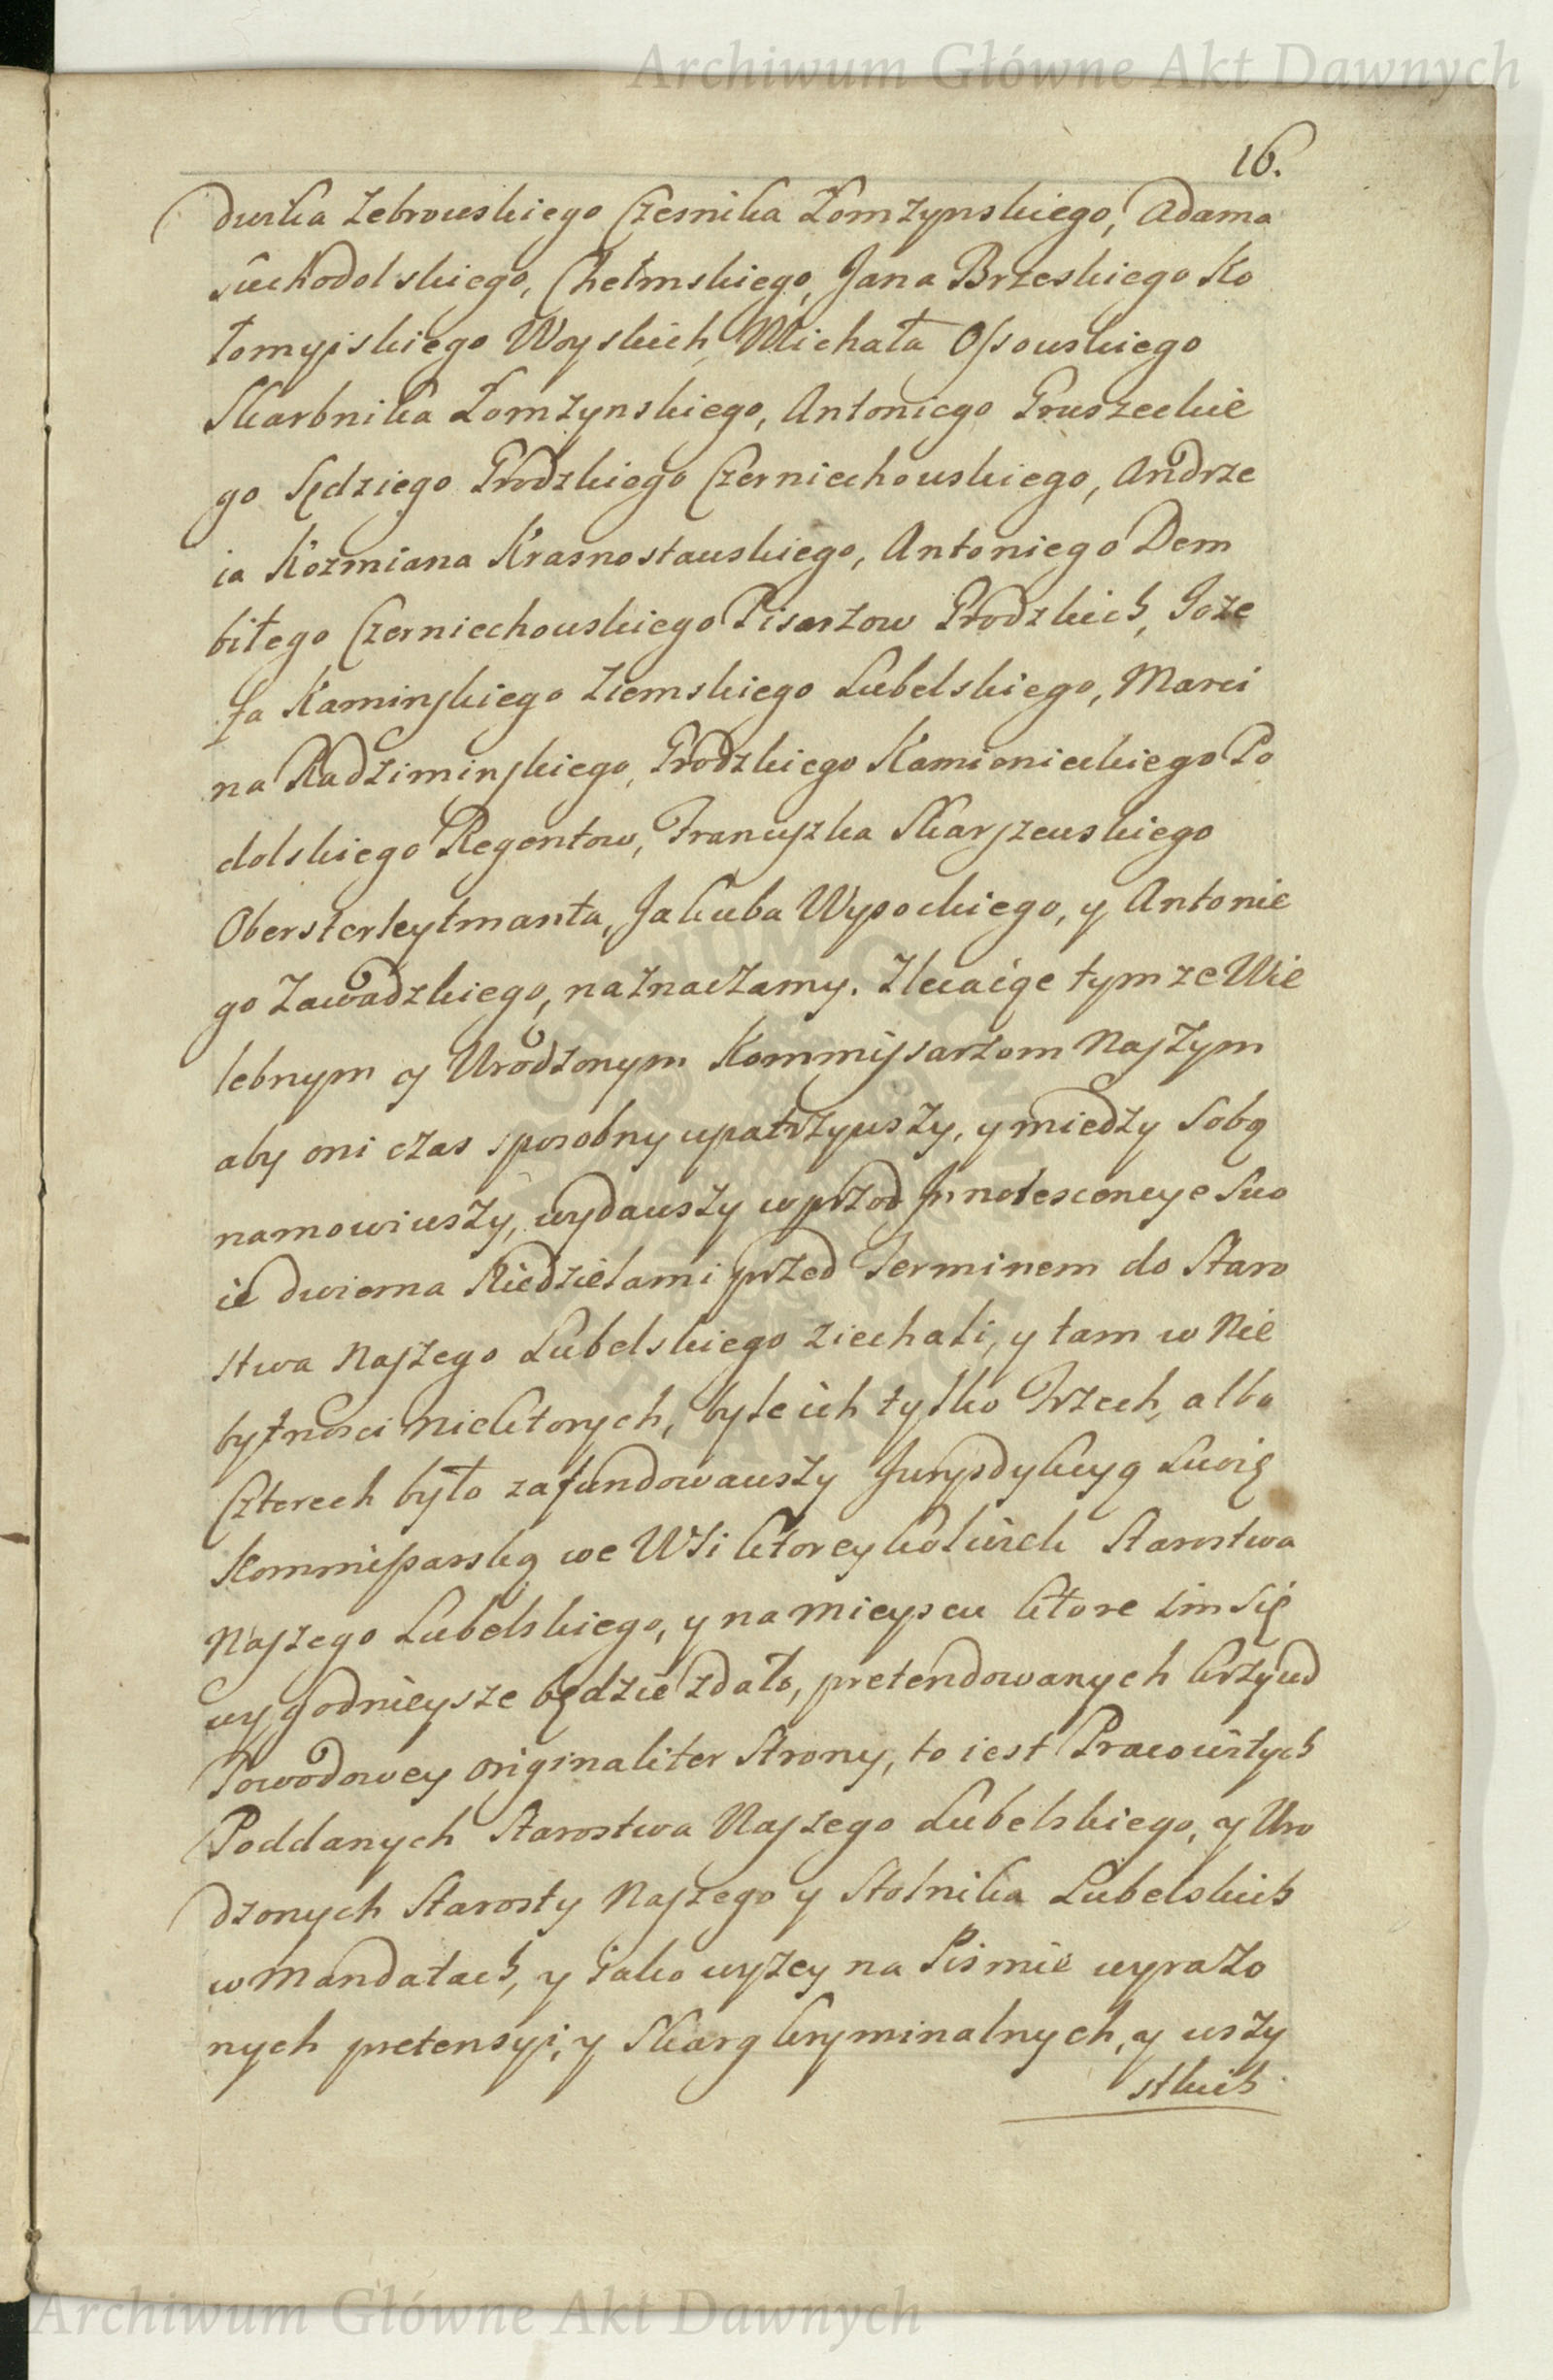 Archiwum Główne Akt Dawnych
16.
dwika Zebrowskiego Czesnika Łomzynskiego, Adama
Suchodolskiego, Chełmskiego, Jana Brzeskiego Ko
łomyiskiego Woyskich, Michała Ossowskiego
Skarbnika Łomzynskiego, Antoniego Gruszeckie
go Sędziego Grodzkiego Czerniechowskiego, Andrze
ia Kozmiana Krasnostawskiego, Antoniego Dem
biłego Czerniechowskiego Pisarzow Grodzkich, Joze
fa Kaminskiego Ziemskiego Lubelskiego, Marci
na Radziminskiego, Grodzkiego Kamienieckiego Po
dolskiego Regentow, Franciszka Skarszewskiego
Obersterleytmanta, Jakuba Wysockiego, y Antonie
go Zawadzkiego, naznaczamy. Zlecaiąc tymze Wie
lebnym y Urodzonym Kommissarzom Naszym
aby oni czas sposobny upatrzywszy, y miedzy Sobą
namowiwszy, wydawszy wprzod Innotescencye Swo
ie dwiema Niedzielami przed Terminem do Staro
stwa Naszego Lubelskiego ziechali, y tam w Nie
bytnosci niektorych, byle ich tylko Trzech, albo
Czterech było zafundowawszy Jurysdykcyą Swoię
Kommissarską we Wsi ktoreykolwiek Starostwa
Naszego Lubelskiego, y na mieyscu ktore im Się
wygodnieysze będzie zdało, pretendowanych krzywd
Powodowey originaliter Strony, to iest Pracowitych
Poddanych Starostwa Naszego Lubelskiego, y Uro
dzonych Starosty Naszego y Stolnika Lubelskich
w Mandatach, y iako wyzey na Pismie wyrazo
nych pretensyi, y Skarg kryminalnych, y wszy
stkich
Archiwum Główne Akt Dawnych